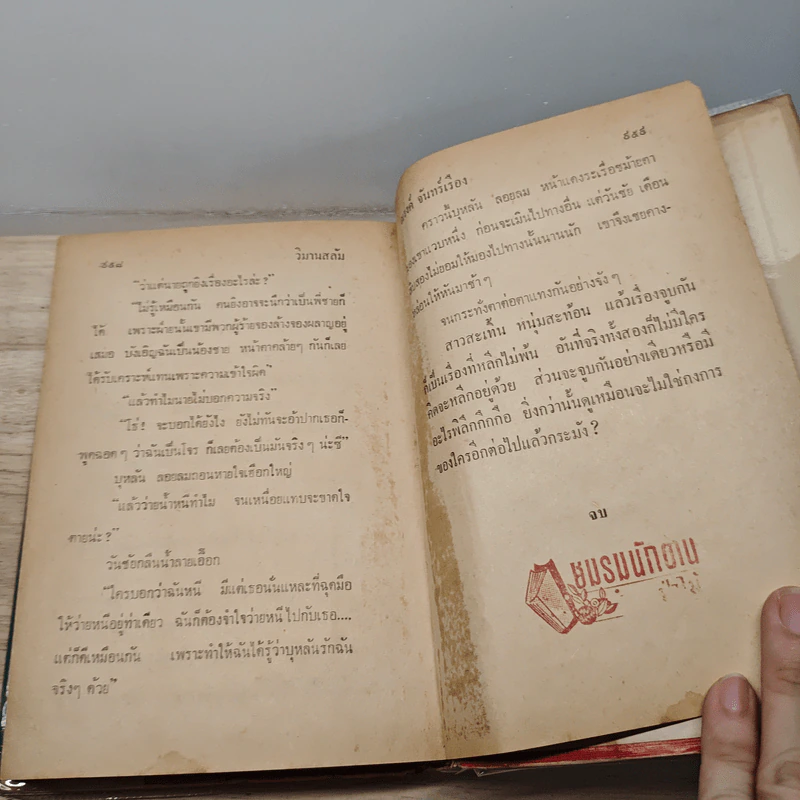 ๘๕๘ วิมานสลัม
“ว่าแต่นายถูกยิงเรื่องอะไรล่ะ?”
“ไม่รู้เหมือนกัน คนยิงอาจจะนึกว่าเป็นพี่ชายก็
ได้ เพราะผ่านั้นเขามีพวกผู้ร้ายจองล้างจองผลาญอยู่
เสมอ บังเอิญฉันเป็นน้องชาย หน้าตาคล้ายๆ กันก็เลย
ได้รับเคราะห์แทนเพราะความเข้าใจผิด”
“แล้วทำไมนายไม่บอกความจริง”
“โธ่! จะบอกได้ยังไง ยังไม่ทันจะอ้าปากเธอก็-
พูดฉอดๆ ว่าฉันเป็นโจร ก็เลยต้องเป็นมันจริงๆ น่ะซี”
บุหลัน ลอยลมถอนหายใจเฮือกใหญ่
“แล้วว่ายน้ำหนีทำไม จนเหนื่อยแทบจะขาดใจ
ตายน่ะ?”
วันชัยกลืนน้ำลายเอื๊อก
“ใครบอกว่าฉันหนี มีแต่เธอนั่นแหละที่ฉุดมือ
ให้ว่ายหนีอยู่ท่าเดียว ฉันก็ต้องจำใจว่ายหนีไปกับเธอ....
แต่ก็ดีเหมือนกัน เพราะทำให้ฉันได้รู้ว่าบุหลันรักฉัน
จริงๆ ด้วย”
๘๕๙
จันทร์เรือง
คราวนี้บุหลัน ลอยลม หน้าแดงระเรื่อชม้ายตา
เขาแวบหนึ่ง ก่อนจะเมินไปทางอื่น แต่วันชัย เดือน
สองไม่ยอมให้มองไปทางนั้นนานนัก เขาจึงเชยคาง-
หล่อนให้หันมาช้าๆ
จนกระทั่งตาต่อตาแทงกันอย่างจังๆ
สาวสะเทิ้น หนุ่มสะท้อน แล้วเรื่องจูบกัน
ก็เป็นเรื่องที่หลีกไม่พ้น อันที่จริงทั้งสองก็ไม่มีใคร
คิดจะหลีกอยู่ด้วย ส่วนจะจูบกันอย่างเดียวหรือมี
อะไรพิลึกกึกกือ ยิ่งกว่านั้นดูเหมือนจะไม่ใช่กงการ
ของใครอีกต่อไปแล้วกระมัง?
จบ
ชมรมนักอ่าน